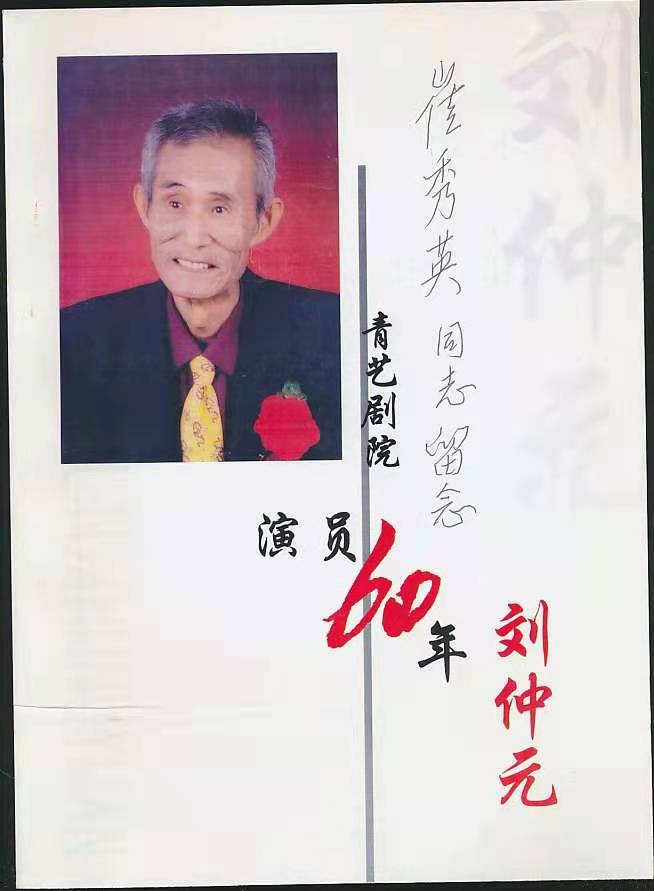 崔秀英 同志 留念
青艺剧院
演员60年
刘仲元
刘仲元